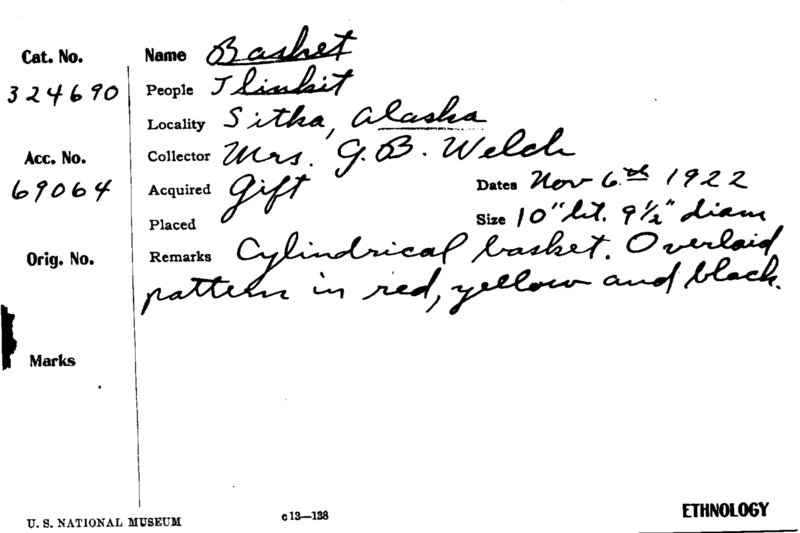 Cat. No. Name Basket
324690 People Tlinkit
Locality Sitka, Alaska
Acc. No. Collector Mrs. G. B. Welch
69064 Acquired Gift Dates Nov 6th 1922
Placed Size 10" ht. 9½" diam
Orig. No. Remarks Cylindrical basket. Overlaid
pattern in red, yellow and black.
Marks
U. S. NATIONAL MUSEUM c13—138 ETHNOLOGY